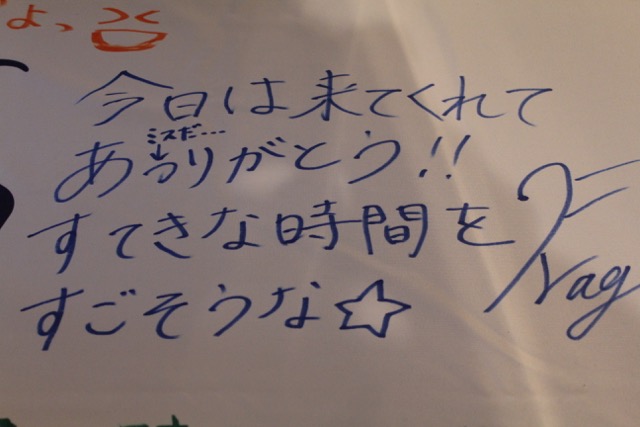 よっ
今日は来てくれて
ミスだ…
ありがとう!!
すてきな時間を
すごそうな☆
Nag